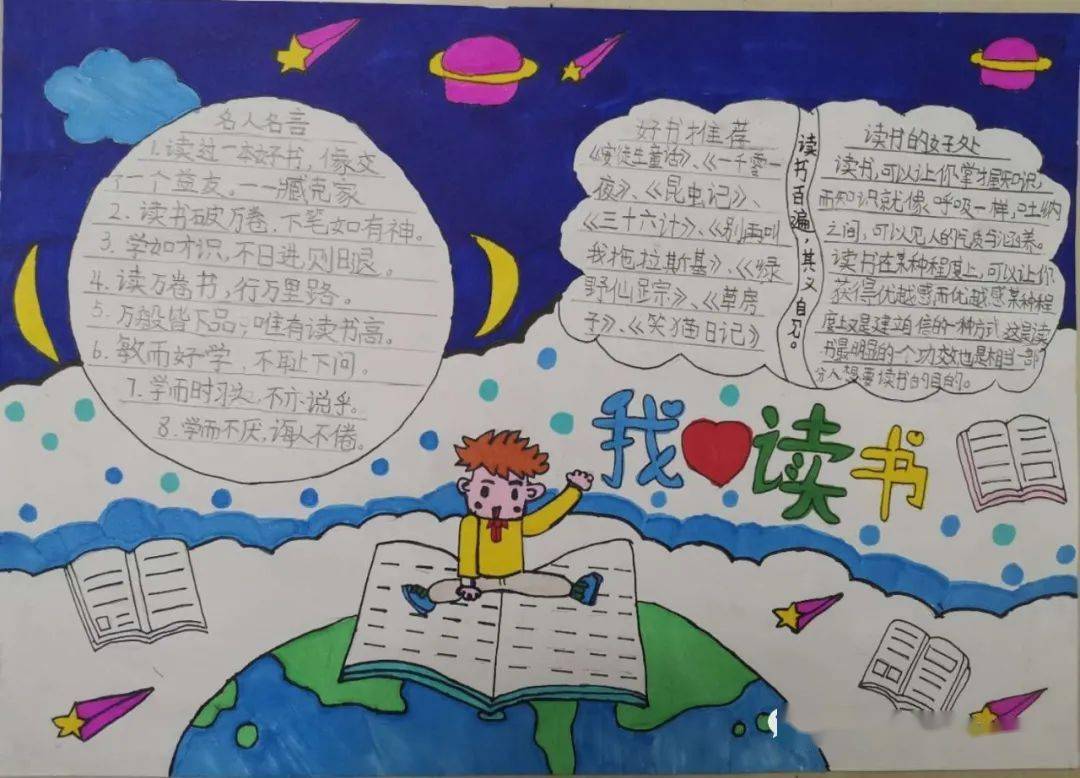 名人名言
1.读过一本好书，像交
了一个益友。——臧克家
2.读书破万卷，下笔如有神。
3.学如才识，不日进，则日退。
4.读万卷书，行万里路。
5.万般皆下品，唯有读书高。
6.敏而好学，不耻下问。
7.学而时习之，不亦说乎。
8.学而不厌，诲人不倦。
好书推荐
《安徒生童话》、《一千零一
夜》、《昆虫记》、
《三十六计》、《别再叫
我拖拉斯基》、《绿
野仙踪》、《草房
子》、《笑猫日记》
读书百遍，其义自习。
读书的好处
读书，可以让你掌握知识，
而知识就像呼吸一样，吐纳
之间，可以见人的气质与涵养。
读书在某种程度上，可以让你
获得优越感而优越感某种程
度上又是建立自信的一种方式 这是读
书最明显的一个功效也是相当一部
分人想要读书的目的。
我 读书